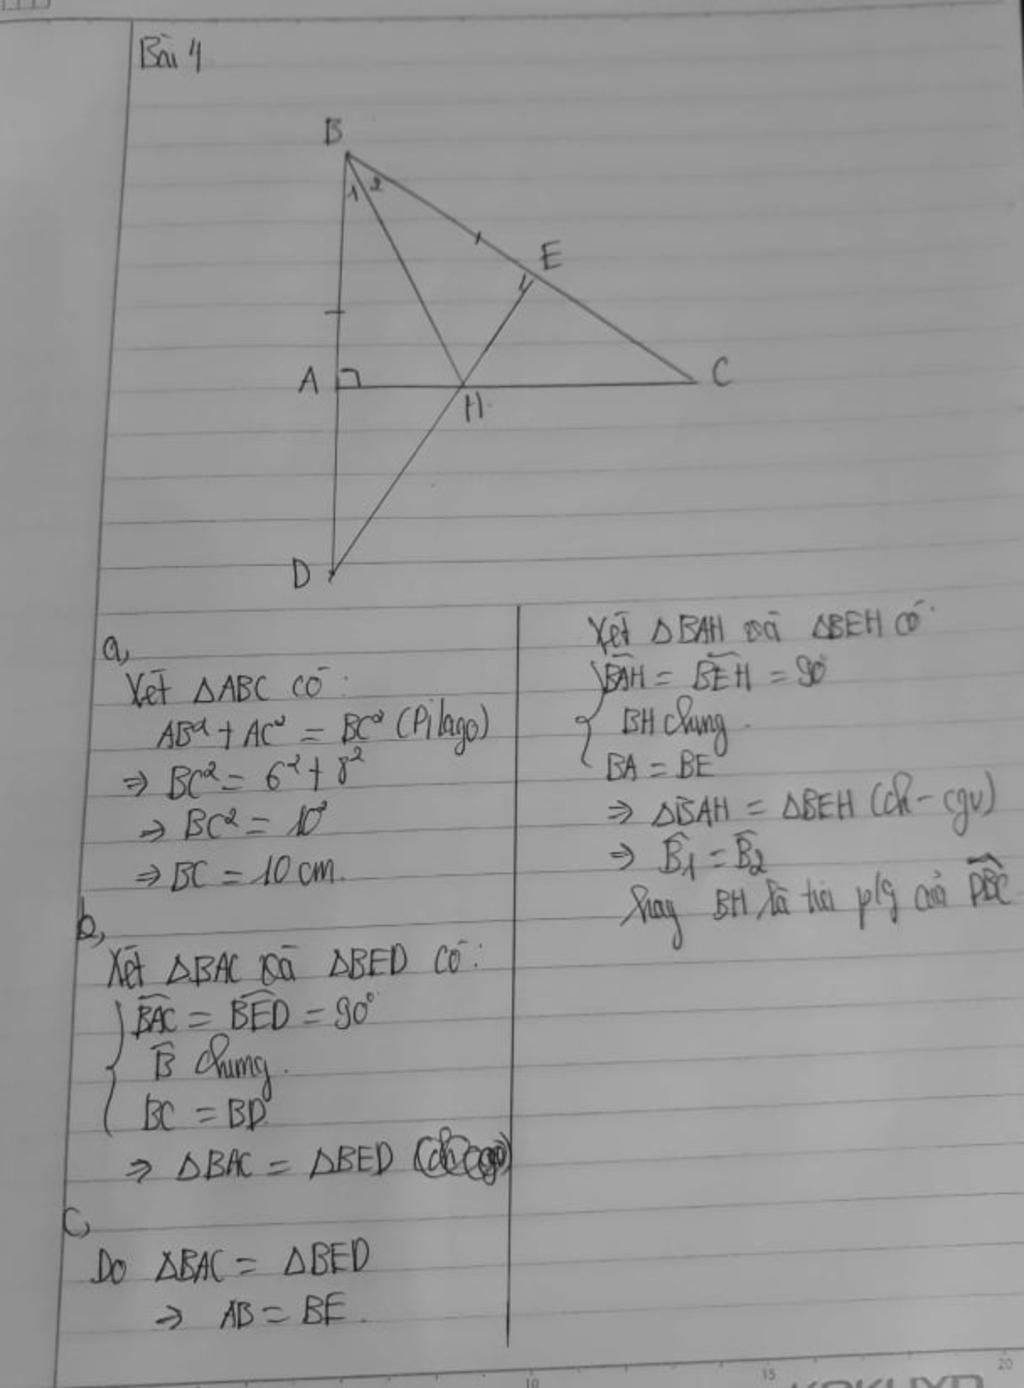 Bài 4
B
1 2
E
A
H
C
D
a,
Xét ΔABC có:
AB² + AC² = BC² (Pitago)
⇒ BC² = 6² + 8²
⇒ BC² = 10²
⇒ BC = 10 cm.
b,
Xét ΔBAC và ΔBED có:
BAC = BED = 90°
B chung.
BC = BD
⇒ ΔBAC = ΔBED
c,
Do ΔBAC = ΔBED
⇒ AB = BE.
Xét ΔBAH và ΔBEH có
BAH = BEH = 90°
BH chung
BA = BE
⇒ ΔBAH = ΔBEH (ch - cgv)
⇒ B̂1 = B̂2
hay BH là tia p/g của DBC
10 15 20
KOKUYO